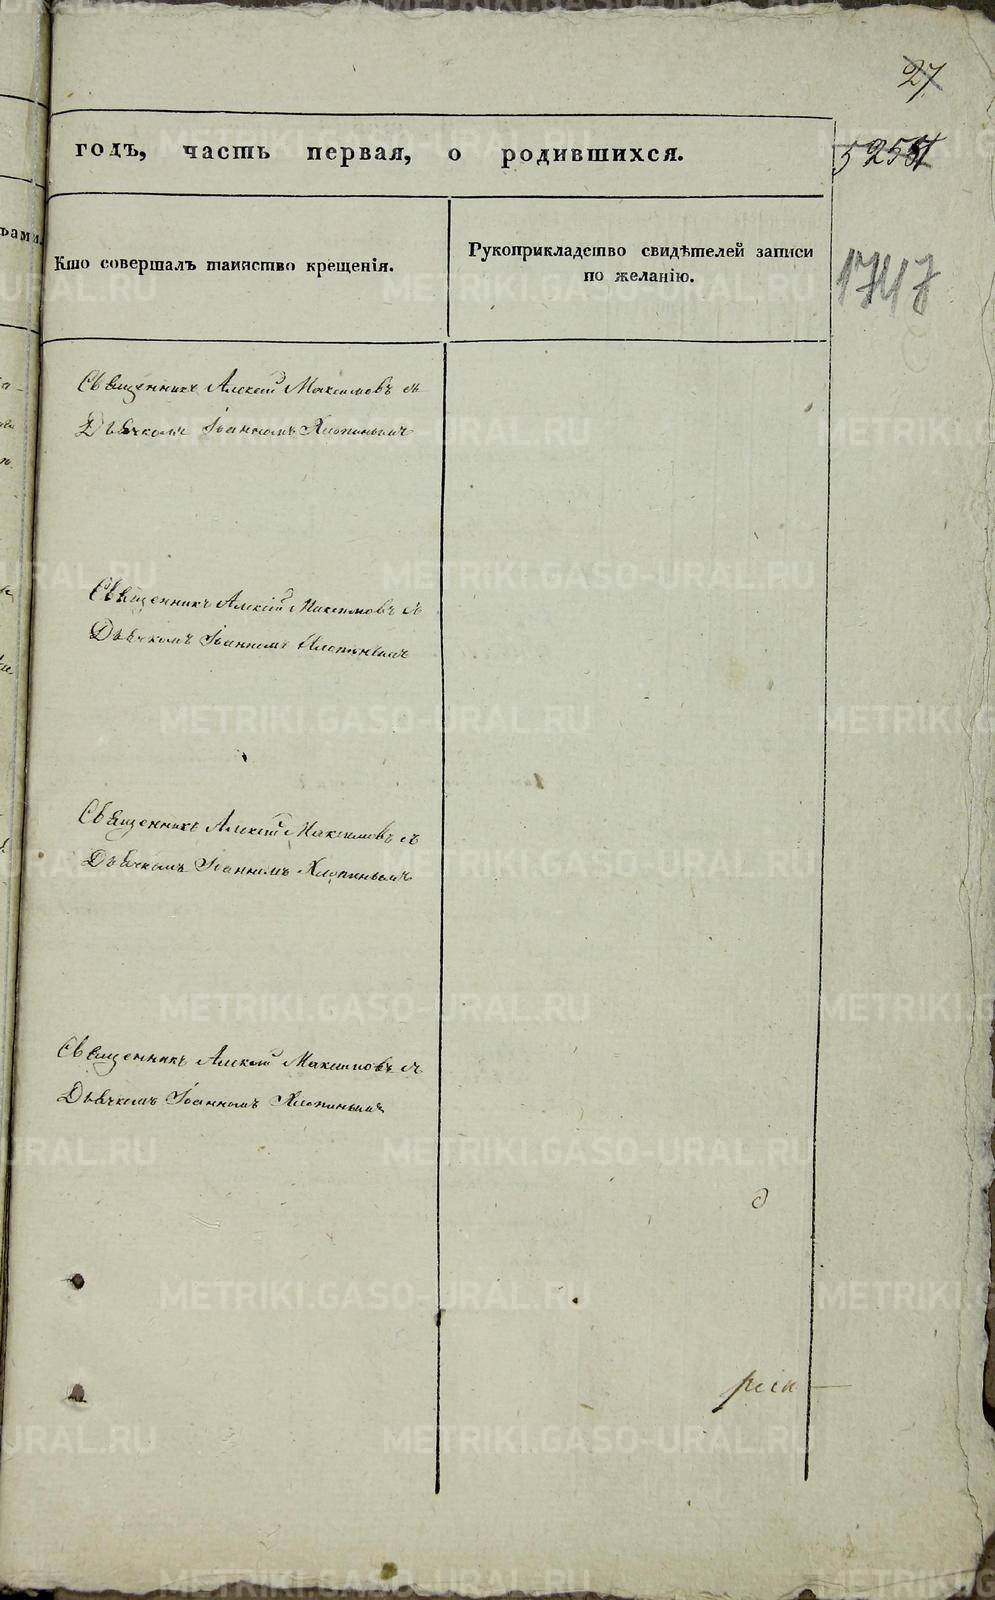 27
годъ, часть первая, о родившихся.
ъами.
Кто совершалъ таинство крещенія.
Рукоприкладство свидѣтелей записи
по желанію.
1747
Священникъ Алексій Максимовъ съ
Дьячкомъ Іоанномъ Хлопинымъ
Священникъ Алексій Максимовъ съ
Дьячкомъ Іоанномъ Хлопинымъ
Священникъ Алексій Максимовъ съ
Дьячкомъ Іоанномъ Хлопинымъ
Священникъ Алексій Максимовъ съ
Дьячкомъ Іоанномъ Хлопинымъ
METRIKI.GASO-URAL.RU